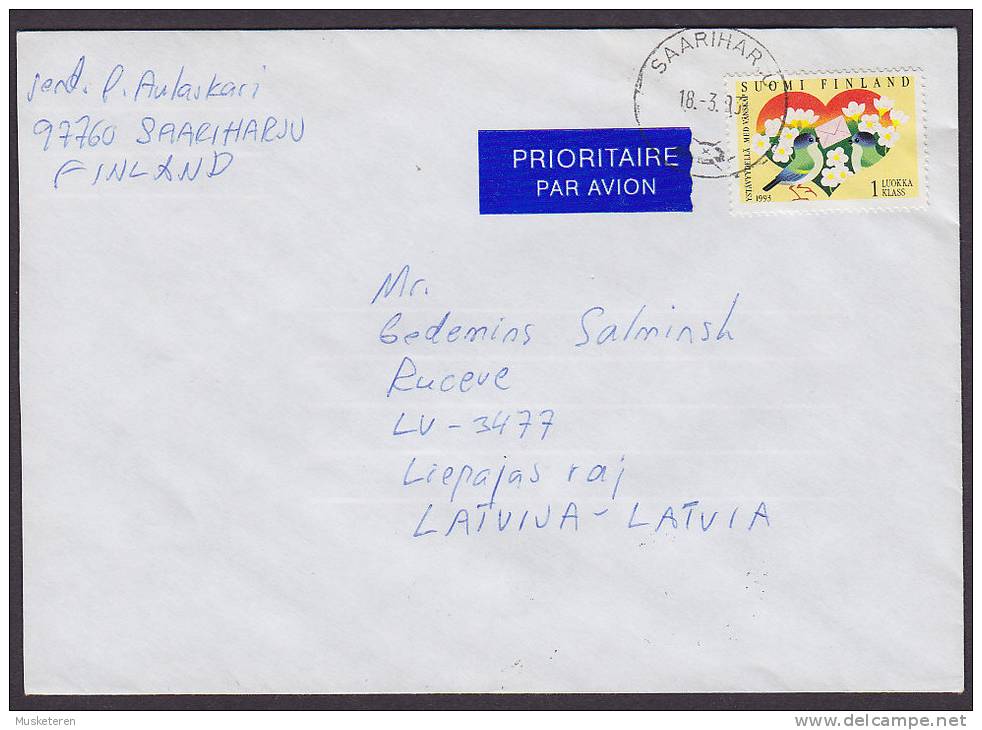 send. P. Aulaskari
97760 SAARIHARJU
FINLAND
SAARIHARJU
18.-3.93
PRIORITAIRE
PAR AVION
SUOMI FINLAND
YSTÄVYYDELLÄ MED VÄNSKAP
1993
1 LUOKKA
KLASS
Mr.
Gedemins Salminsh
Ruceve
LV-3477
Liepajas raj
LATVIJA-LATVIA
Musketeren
www.delcampe.net